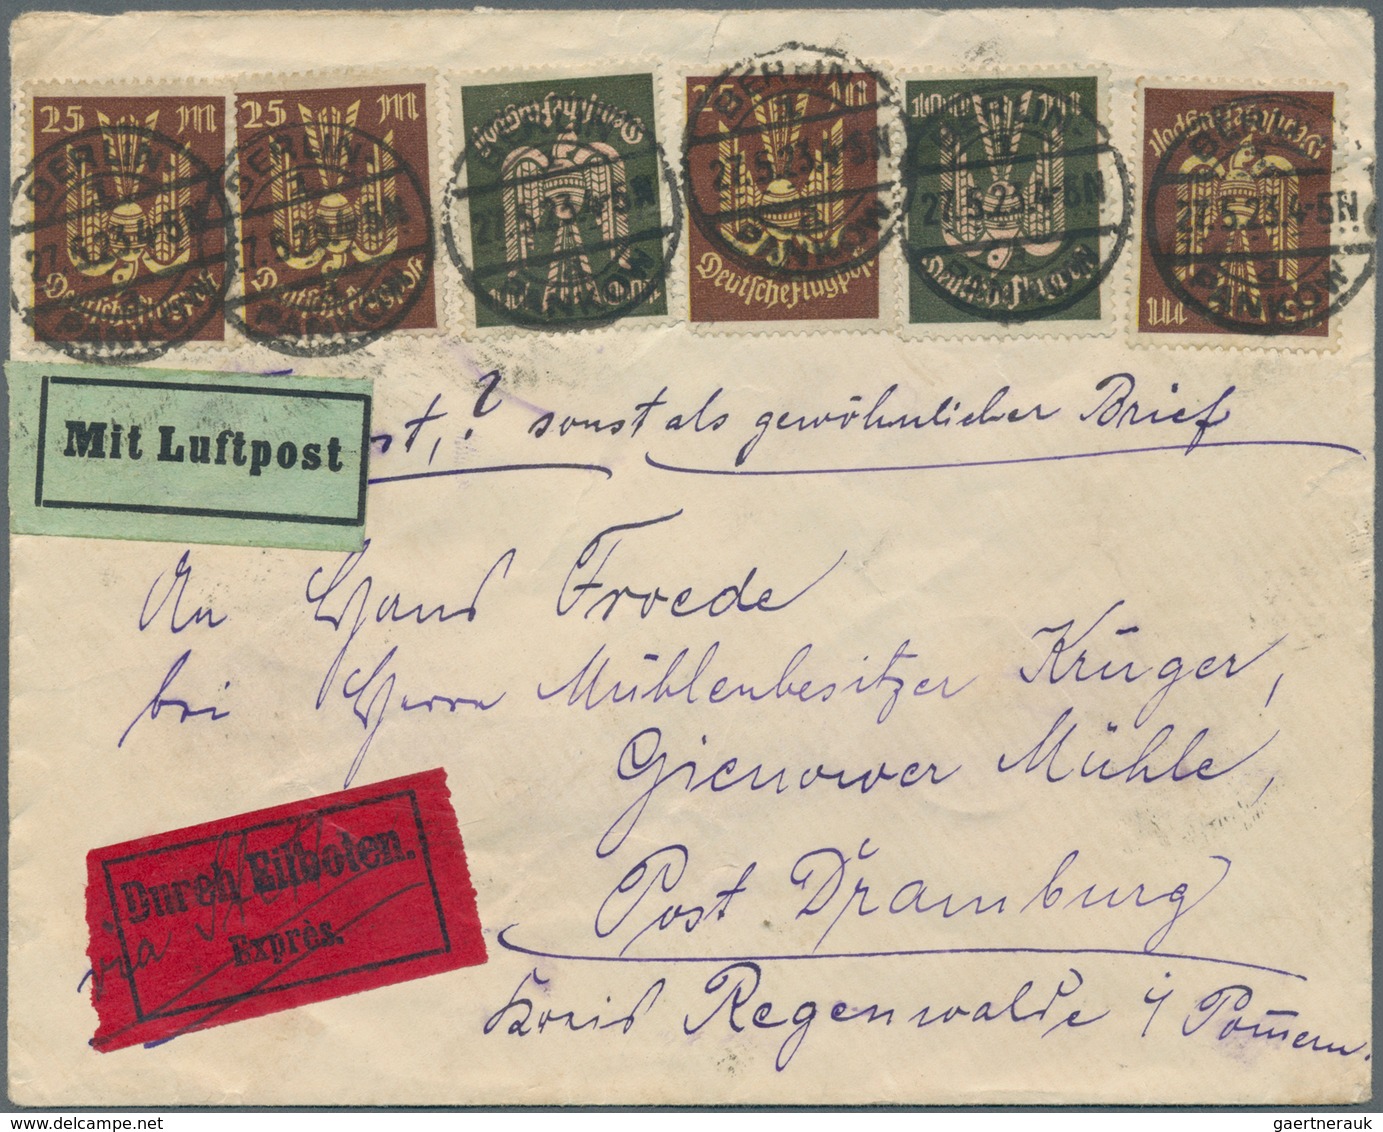 25 M
Deutsche Flugpost
25 M
Deutsche Flugpost
Deutsche Flugpost
25 M
Deutsche Flugpost
Deutsche Flugpost
Deutsche Flugpost
25 M
BERLIN-
1
27.5.23.4-5N
a
PANKOW
BERLIN-
1
27.5.23.4-5N
a
PANKOW
BERLIN-
27.5.23.4-5N
PANKOW
BERLIN-
1
27.5.23.4-5N
a
PANKOW
BERLIN-
1
27.5.23.4-5N
PANKOW
BERLIN-
27.5.23.4-5N
a
PANKOW
Mit Luftpost
st,? sonst als gewöhnlicher Brief
An Hans Froede
bei Herrn Mühlenbesitzer Krüger,
Gienower Mühle,
Post Dramburg
Kreis Regenwalde i/Pom̄ern.
Durch Eilboten.
Exprès.
via
gaertnerauk / delcampe.net